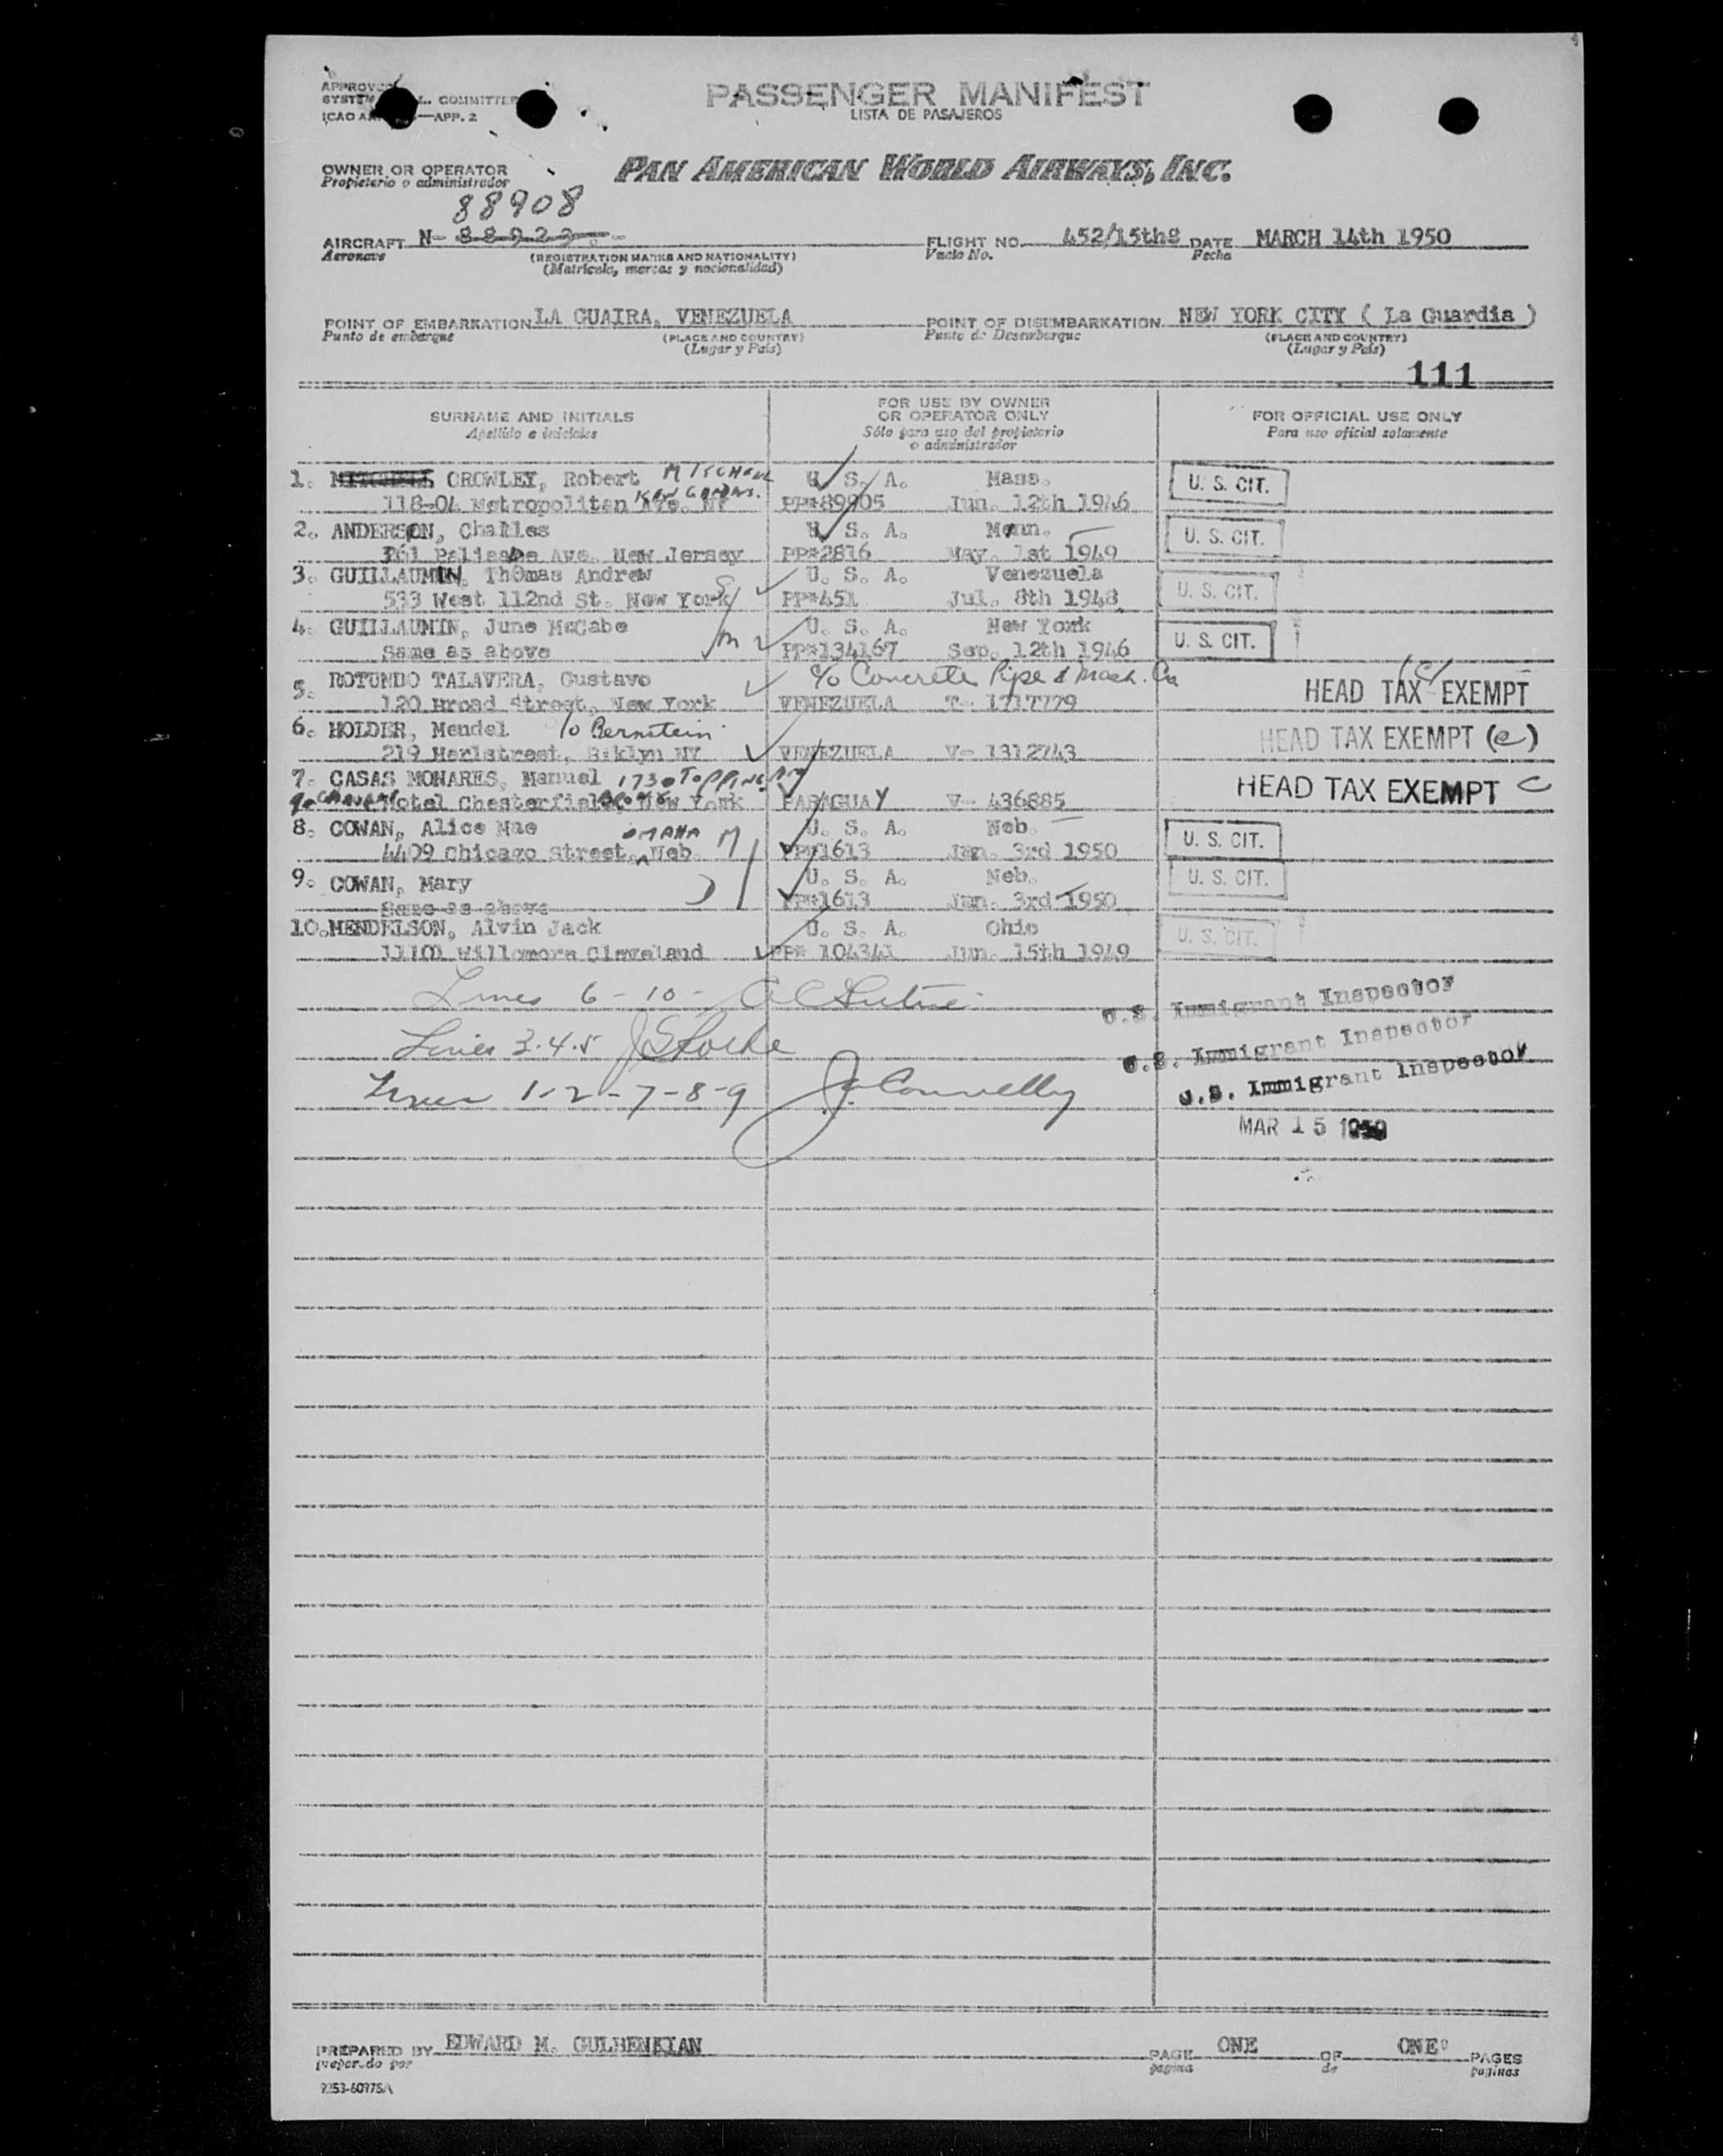 PASSENGER MANIFEST
LISTA DE PASAJEROS
ICAO —APP. 2
OWNER OR OPERATOR
Propietario o administrador
PAN AMERICAN WORLD AIRWAYS, INC.
88908
AIRCRAFT N- 88923 FLIGHT NO. 452/15ths DATE MARCH 14th 1950
Aeronave (REGISTRATION MARKS AND NATIONALITY) Vuelo No. Fecha
(Matrícula, marcas y nacionalidad)
POINT OF EMBARKATION LA GUAIRA, VENEZUELA POINT OF DISEMBARKATION NEW YORK CITY ( La Guardia )
Punto de embarque (PLACE AND COUNTRY) Punto de Desembarque (PLACE AND COUNTRY)
(Lugar y País) (Lugar y País)
111
SURNAME AND INITIALS FOR USE BY OWNER OR OPERATOR ONLY FOR OFFICIAL USE ONLY
Apellido e iniciales Sólo para uso del propietario o administrador Para uso oficial solamente
1. CROWLEY, Robert MITCHELL U. S. A. Mass. U. S. CIT.
118-04 Metropolitan Ave. NY KEW GARDNS. PP#89905 Jun. 12th 1946
2. ANDERSON, Charles U. S. A. U. S. CIT.
361 Palisade Ave. New Jersey PP#2816 May. 1st 1949
3. GUILLAUMIN, Thomas Andrew U. S. A. Venezuela U. S. CIT.
533 West 112nd St. New York PP#451 Jul. 8th 1948
4. GUILLAUMIN, June McCabe U. S. A. New York U. S. CIT.
Same as above PP#134167 Sep. 12th 1946
5. ROTUNDO TALAVERA, Gustavo c/o Concrete Pipe & Mach. Co (c)
120 Broad Street, New York VENEZUELA T- 1717779 HEAD TAX EXEMPT
6. HOLDER, Mendel c/o Bernstein HEAD TAX EXEMPT (c)
219 Street, B:klyn NY VENEZUELA V- 1312743
7. CASAS MONARES, Manuel 1730 TOPPING AV HEAD TAX EXEMPT C
Hotel Chesterfield, New York BRONX PARAGUAY V- 436885
8. COWAN, Alice Mae OMAHA M U. S. A. Neb. U. S. CIT.
4409 Chicago Street, Neb. PP#1613 Jan. 3rd 1950
9. COWAN, Mary U. S. A. Neb. U. S. CIT.
Same as above PP#1613 Jan. 3rd 1950
10. MENDELSON, Alvin Jack U. S. A. Ohio U. S. CIT.
11101 Willomore Cleveland PP# 104341 Jun. 15th 1949
Lines 6 - 10 - U.S. Immigrant Inspector
Lines 3.4.5 U.S. Immigrant Inspector
Lines 1-2-7-8-9 J Connelly U.S. Immigrant Inspector
MAR 15 1950
PREPARED BY EDWARD M. GULBENKIAN PAGE ONE OF ONE PAGES
preparado por pagina de paginas
9253-60975A